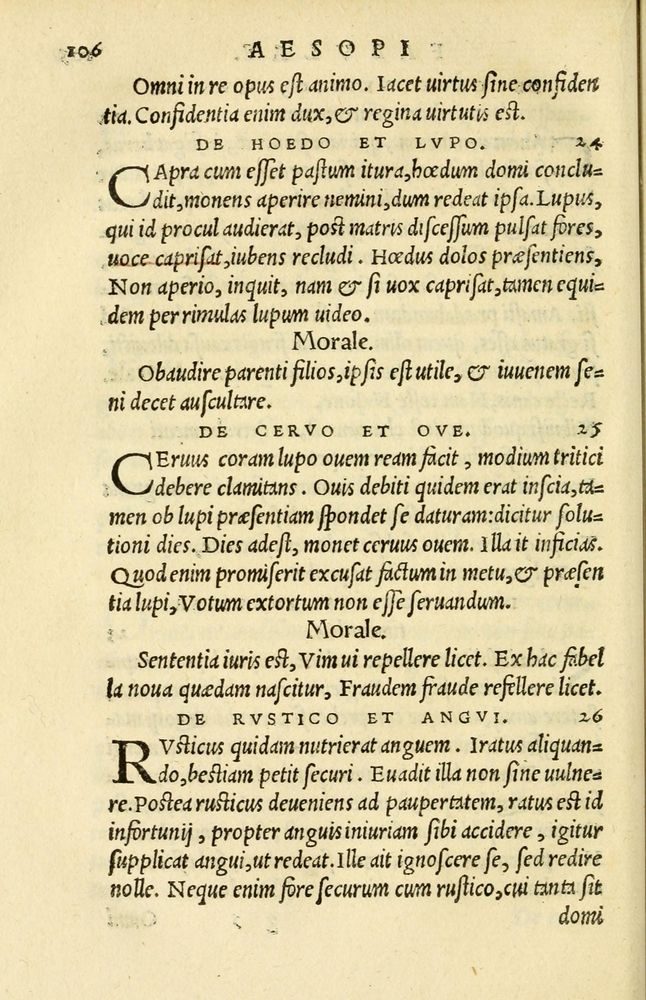 106 AESOPI
Omni in re opus est animo. Iacet uirtus sine confiden
tia. Confidentia enim dux, & regina uirtutis est.
DE HOEDO ET LVPO. 24
CApra cum esset pastum itura, hœdum domi conclu=
dit, monens aperire nemini, dum redeat ipsa. Lupus,
qui id procul audierat, post matris discessum pulsat fores,
uoce caprisat, iubens recludi. Hœdus dolos præsentiens,
Non aperio, inquit, nam & si uox caprisat, tamen equi=
dem per rimulas lupum uideo.
Morale.
Obaudire parenti filios, ipsis est utile, & iuuenem se=
ni decet auscultare.
DE CERVO ET OVE. 25
CEruus coram lupo ouem ream facit, modium tritici
debere clamitans. Ouis debiti quidem erat inscia, ta=
men ob lupi præsentiam spondet se daturam: dicitur solu=
tioni dies. Dies adest, monet ceruus ouem. Illa it inficias.
Quod enim promiserit excusat factum in metu, & præsen
tia lupi, Votum extortum non esse seruandum.
Morale.
Sententia iuris est, Vim ui repellere licet. Ex hac fabel
la noua quædam nascitur, Fraudem fraude refellere licet.
DE RVSTICO ET ANGVI. 26
RVsticus quidam nutrierat anguem. Iratus aliquan=
do, bestiam petit securi. Euadit illa non sine uulne=
re. Postea rusticus deueniens ad paupertatem, ratus est id
infortunij, propter anguis iniuriam sibi accidere, igitur
supplicat angui, ut redeat. Ille ait ignoscere se, sed redire
nolle. Neque enim fore securum cum rustico, cui tanta sit
domi